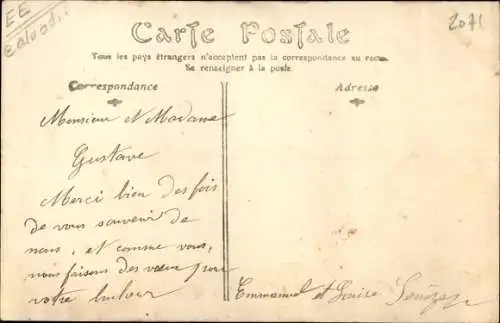 EE
Calvados
2071
Carte Postale
Tous les pays étrangers n'acceptent pas la correspondance au recto.
Se renseigner à la poste.
Correspondance
Adresse
Monsieur et Madame
Gustave
Merci bien des fois
de vous souvenir de
nous, et comme vous,
nous faisons des vœux pour
votre bonheur
Emmanuel et Louise